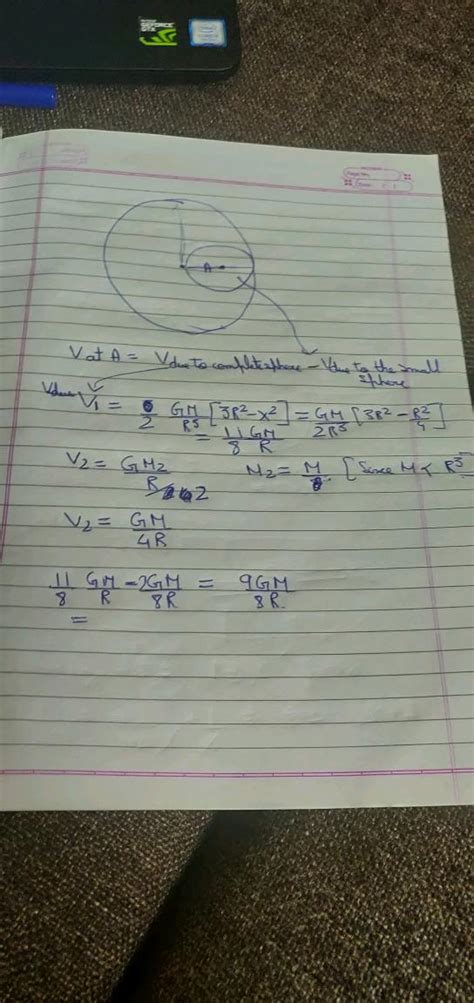 GEFORCE
GTX
intel
A
V at A = Vdue to complete sphere - Vdue to the small
sphere
Vdue
V1 = G/2 GM/R³ [3R²-x²] = GM/2R³ [3R² - R²/4]
= 11/8 GM/R
V2 = GM2/R/2 M2 = M/8 [Since M ∝ R³
V2 = GM/4R
11/8 GM/R - 2GM/8R = 9GM/8R.
=